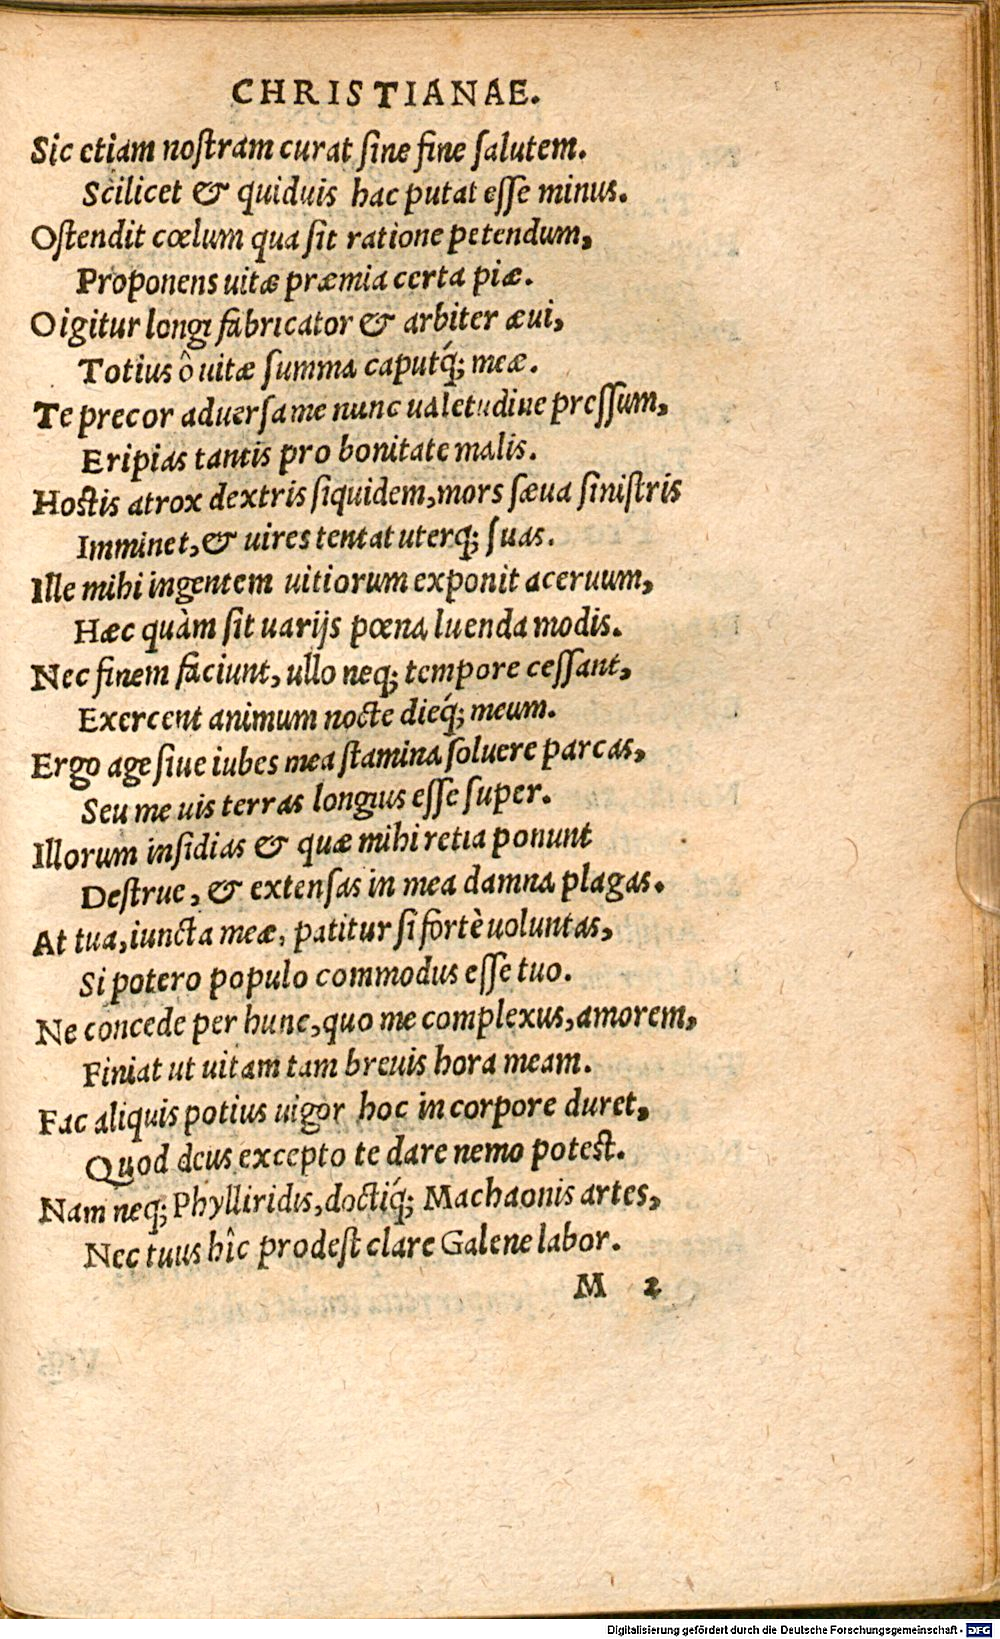 CHRISTIANAE.
Sic etiam noſtram curat ſine fine ſalutem.
Scilicet & quiduis hac putat eſſe minus.
Oſtendit cœlum qua ſit ratione petendum,
Proponens uitæ præmia certa piæ.
O igitur longi fabricator & arbiter æui,
Totius ô uitæ ſumma caputq́; meæ.
Te precor aduerſa me nunc ualetudine preſſum,
Eripias tantis pro bonitate malis.
Hoſtis atrox dextris ſiquidem, mors ſæua ſiniſtris
Imminet, & uires tentat uterq; ſuas.
Ille mihi ingentem uitiorum exponit aceruum,
Hæc quàm ſit uarijs pœna luenda modis.
Nec finem faciunt, ullo neq; tempore ceſſant,
Exercent animum nocte dieq́; meum.
Ergo age ſiue iubes mea ſtamina ſoluere parcas,
Seu me uis terras longius eſſe ſuper.
Illorum inſidias & quæ mihi retia ponunt
Deſtrue, & extenſas in mea damna plagas.
At tua, iuncta meæ, patitur ſi fortè uoluntas,
Si potero populo commodus eſſe tuo.
Ne concede per hunc, quo me complexus, amorem,
Finiat ut uitam tam breuis hora meam.
Fac aliquis potius uigor hoc in corpore duret,
Quod deus excepto te dare nemo poteſt.
Nam neq; Phylliridis, doctiq́; Machaonis artes,
Nec tuus hîc prodeſt clare Galene labor.
M 2
Digitalisierung gefördert durch die Deutsche Forschungsgemeinschaft - DFG